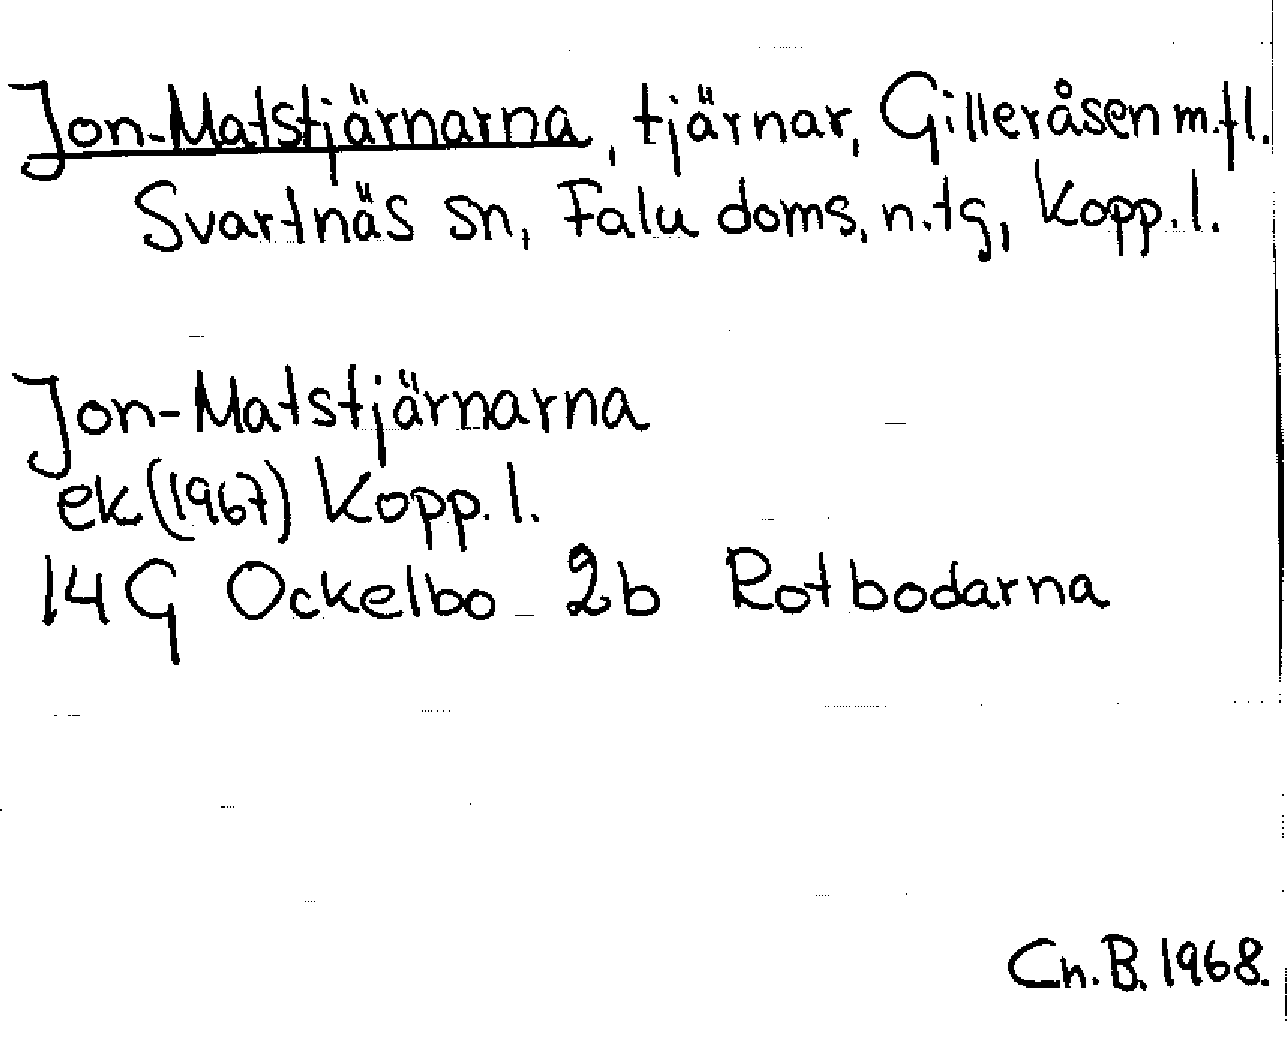 Jon-Matstjärnarna, tjärnar, Gilleråsen m.fl.
Svartnäs sn, Falu doms. n.tg, Kopp. l.
Jon-Matstjärnarna
ek (1967) Kopp. l.
14 G Ockelbo 2b Rotbodarna
Ch. B. 1968.